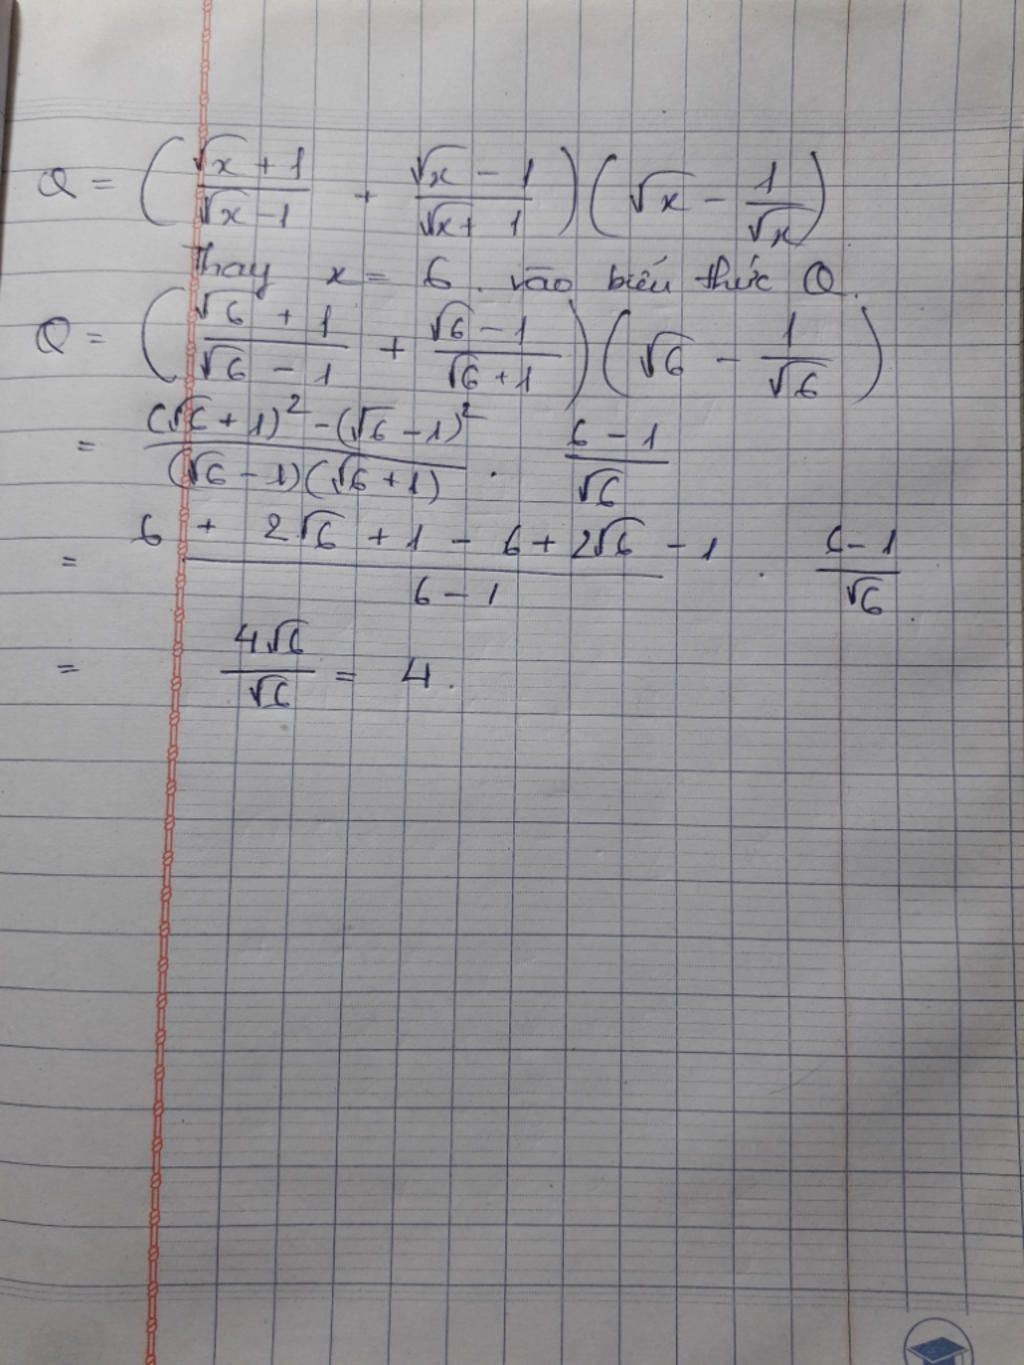 Q = ( (√x + 1)/(√x - 1) + (√x - 1)/(√x + 1) ) ( √x - 1/√x )
Thay x = 6. vào biểu thức Q.
Q = ( (√6 + 1)/(√6 - 1) + (√6 - 1)/(√6 + 1) ) ( √6 - 1/√6 )
= ((√6 + 1)² - (√6 - 1)²)/((√6 - 1)(√6 + 1)) . (6 - 1)/√6
= (6 + 2√6 + 1 - 6 + 2√6 - 1)/(6 - 1) . (6 - 1)/√6.
= 4√6/√6 = 4.